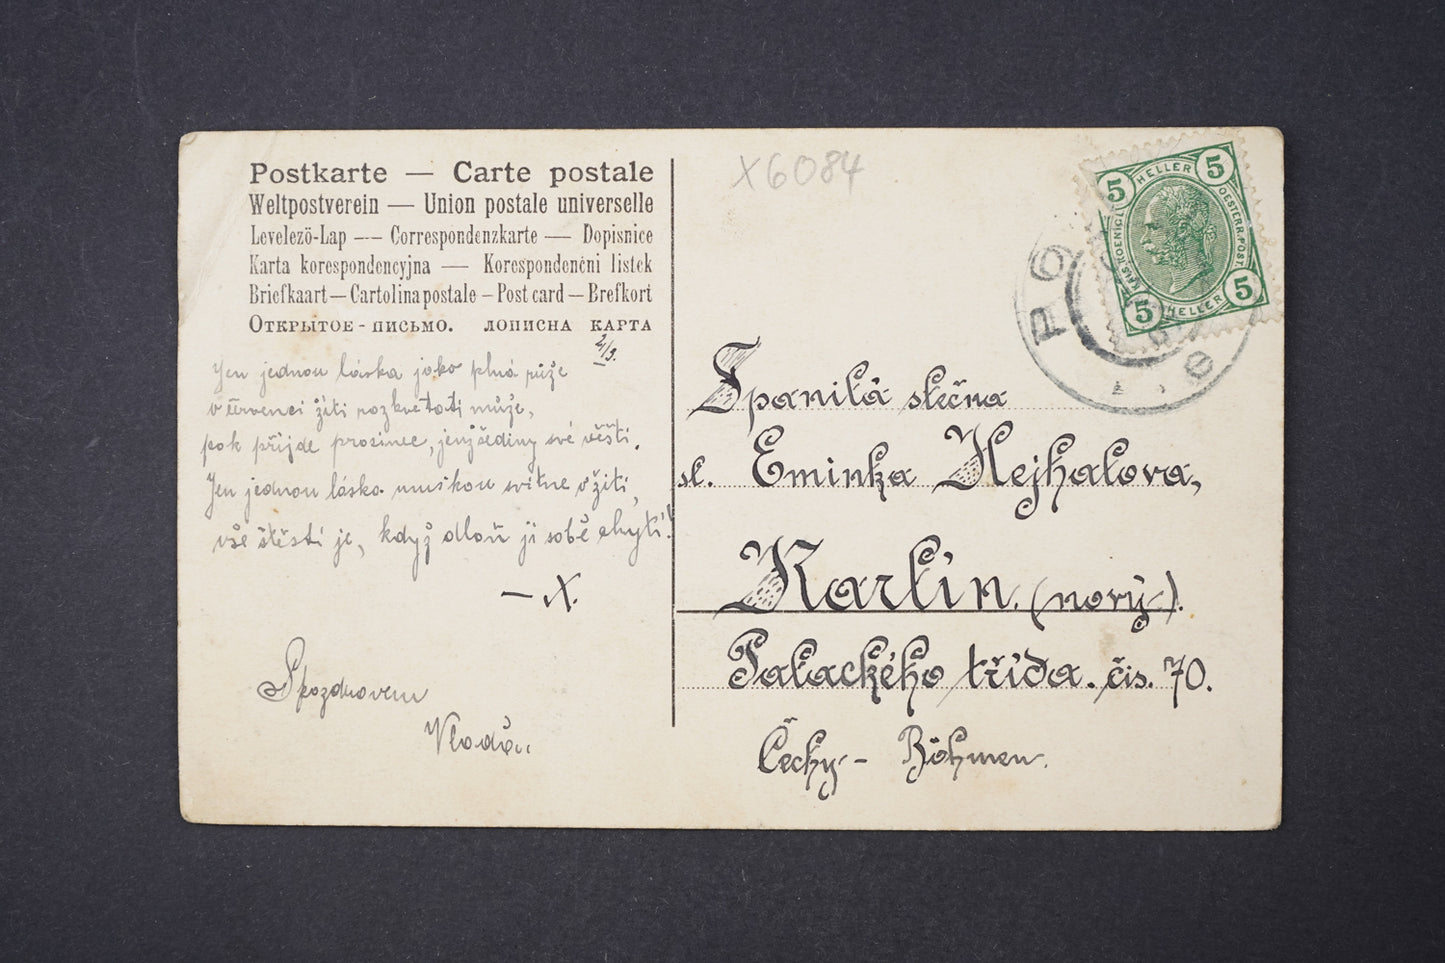 Postkarte — Carte postale
Weltpostverein — Union postale universelle
Levelező-Lap — Correspondenzkarte — Dopisnice
Karta korespondencyjna — Korespondenčni listek
Briefkaart — Cartolina postale – Post card – Brefkort
Открытое - письмо. лописна карта
Jen jednou láska jako plná růže
v červenci žití rozkvetati může,
pak přijde prosinec, jenž šediny své věští.
Jen jednou láska muškou svitne v žití,
vše štěstí je, když dlaň ji sobě chytí!
— X.
S pozdravem
X6084
5 HELLER 5
OESTERR. POST.
KAIS. KOENIGL.
5 HELLER 5
Spanilá slečna
sl. Eminka Nejhalova,
Karlín. (nový).
Palackého třída. čis. 70.
Čechy - Böhmen.